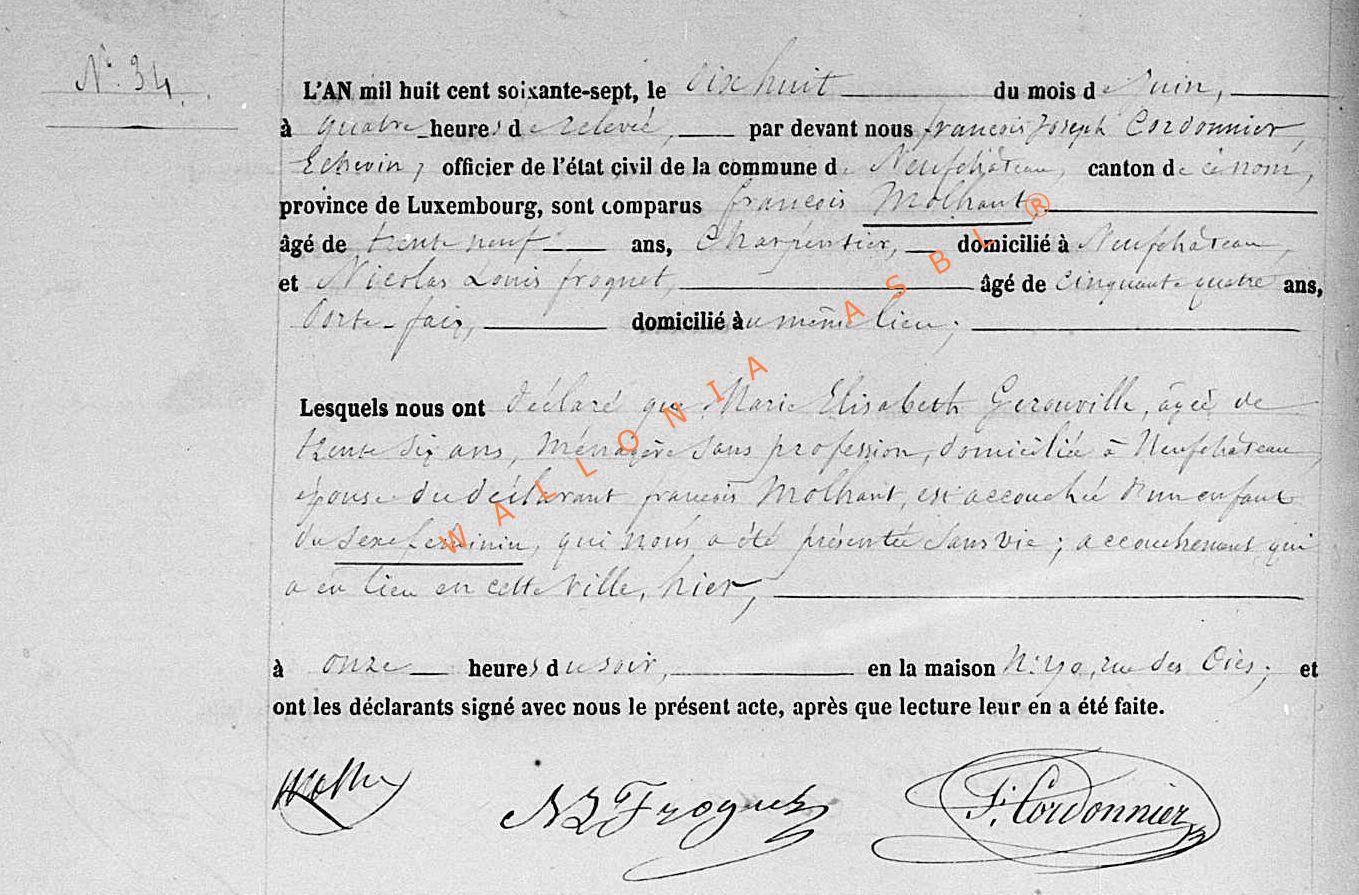 N° 34.
L'AN mil huit cent soixante-sept, le dix huit du mois de Juin,
à quatre heures de relevée, par devant nous françois Joseph Cordonnier,
Echevin, officier de l'état civil de la commune de Neufchâteau, canton de ce nom,
province de Luxembourg, sont comparus françois Molhant,
âgé de trente neuf ans, Charpentier, domicilié à Neufchâteau,
et Nicolas Louis froguet, âgé de cinquante quatre ans,
Porte-faix, domicilié au même lieu;
Lesquels nous ont déclaré que Marie Elisabeth Gerouville, agée de
trente six ans, Ménagère sans profession, domiciliée à Neufchâteau,
épouse du déclarant françois Molhant, est accouchée d'un enfant
du sexe feminin, qui nous a été présentée sans vie; accouchement qui
a eu lieu en cette ville, hier,
à onze heures du soir, en la maison N° 70, rue des Oies; et
ont les déclarants signé avec nous le présent acte, après que lecture leur en a été faite.
NL Froguet
F. Cordonnier
WALLONIA ASBL ®